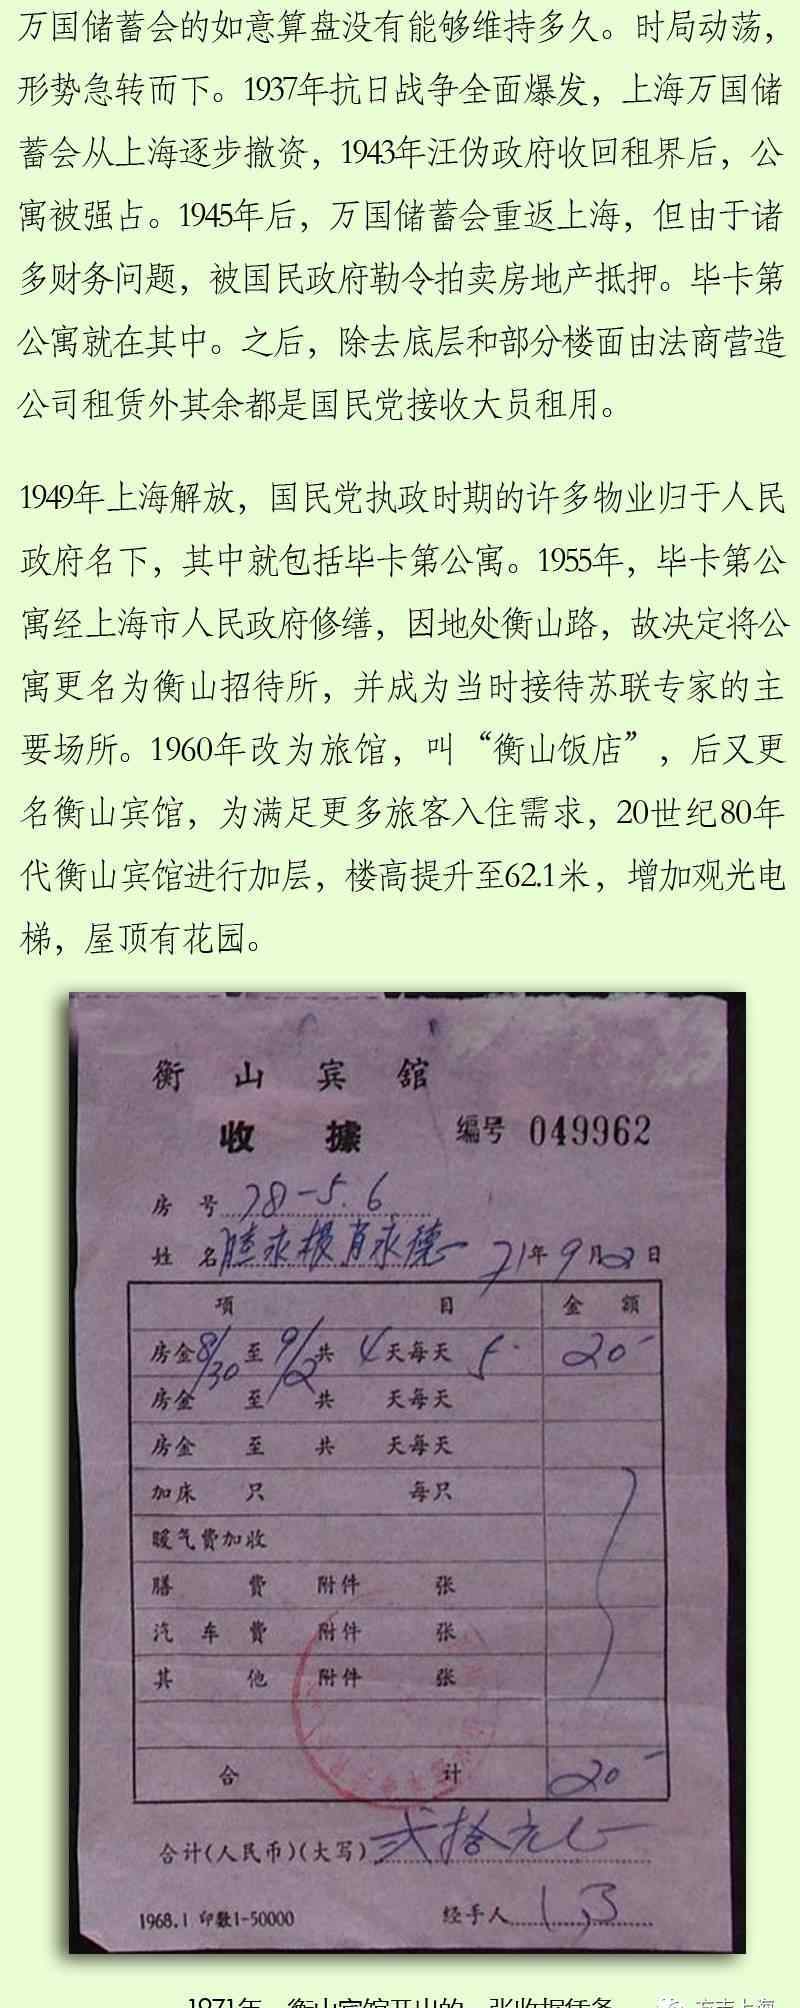 万国储蓄会的如意算盘没有能够维持多久。时局动荡，
形势急转而下。1937年抗日战争全面爆发，上海万国储
蓄会从上海逐步撤资，1943年汪伪政府收回租界后，公
寓被强占。1945年后，万国储蓄会重返上海，但由于诸
多财务问题，被国民政府勒令拍卖房地产抵押。毕卡第
公寓就在其中。之后，除去底层和部分楼面由法商营造
公司租赁外其余都是国民党接收大员租用。
1949年上海解放，国民党执政时期的许多物业归于人民
政府名下，其中就包括毕卡第公寓。1955年，毕卡第公
寓经上海市人民政府修缮，因地处衡山路，故决定将公
寓更名为衡山招待所，并成为当时接待苏联专家的主
要场所。1960年改为旅馆，叫“衡山饭店”，后又更
名衡山宾馆，为满足更多旅客入住需求，20世纪80年
代衡山宾馆进行加层，楼高提升至62.1米，增加观光电
梯，屋顶有花园。
衡山宾舘
收據 编号 049962
房号 78-5.6
姓名 永根肖永德 71年9月2日
项目 金额
房金8/30至9/2共4天每天5. 20-
房金 至 共 天每天
房金 至 共 天每天
加床 只 每只
暖气费加收
膳费 附件 张
汽车费 附件 张
其他 附件 张
合计 20-
合计(人民币)(大写) 弍拾元
1968.1 印数1-50000 经手人
1971年 衡山宾馆开出的一张收据凭条 方志上海